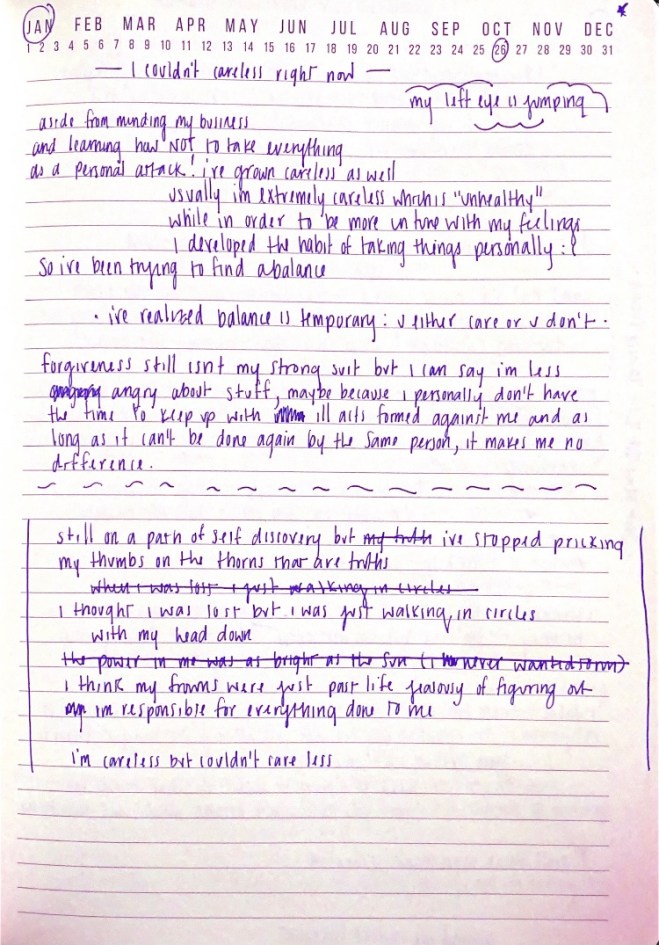 JAN FEB MAR APR MAY JUN JUL AUG SEP OCT NOV DEC
1 2 3 4 5 6 7 8 9 10 11 12 13 14 15 16 17 18 19 20 21 22 23 24 25 26 27 28 29 30 31
— I couldn't careless right now —
my left eye is jumping
aside from minding my business
and learning how NOT to take everything
as a personal attack! i've grown careless as well
usually im extremely careless which is "unhealthy"
while in order to be more in tune with my feelings
I developed the habit of taking things personally :(
So ive been trying to find a balance
· ive realized balance is temporary : u either care or u don't ·
forgiveness still isnt my strong suit but i can say im less
angry about stuff, maybe because i personally don't have
the time to keep up with ill acts formed against me and as
long as it can't be done again by the same person, it makes me no
difference.
~ ~ ~ ~ ~ ~ ~ ~ ~ ~ ~ ~ ~ ~
still on a path of self discovery but my truth ive stopped pricking
my thumbs on the thorns that are truths
when i was lost i just walking in circles
I thought i was lost but i was just walking in circles
with my head down
the power in me was as bright as the sun (i never wanted to run)
i think my frowns were just past life jealousy of figuring out
im responsible for everything done to me
i'm careless but couldn't care less